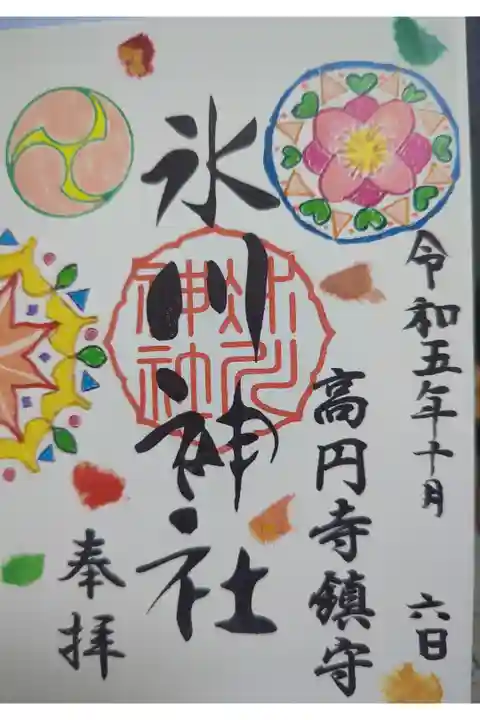 令和五年十月六日
高円寺鎮守
氷川神社
氷川神社
奉拝